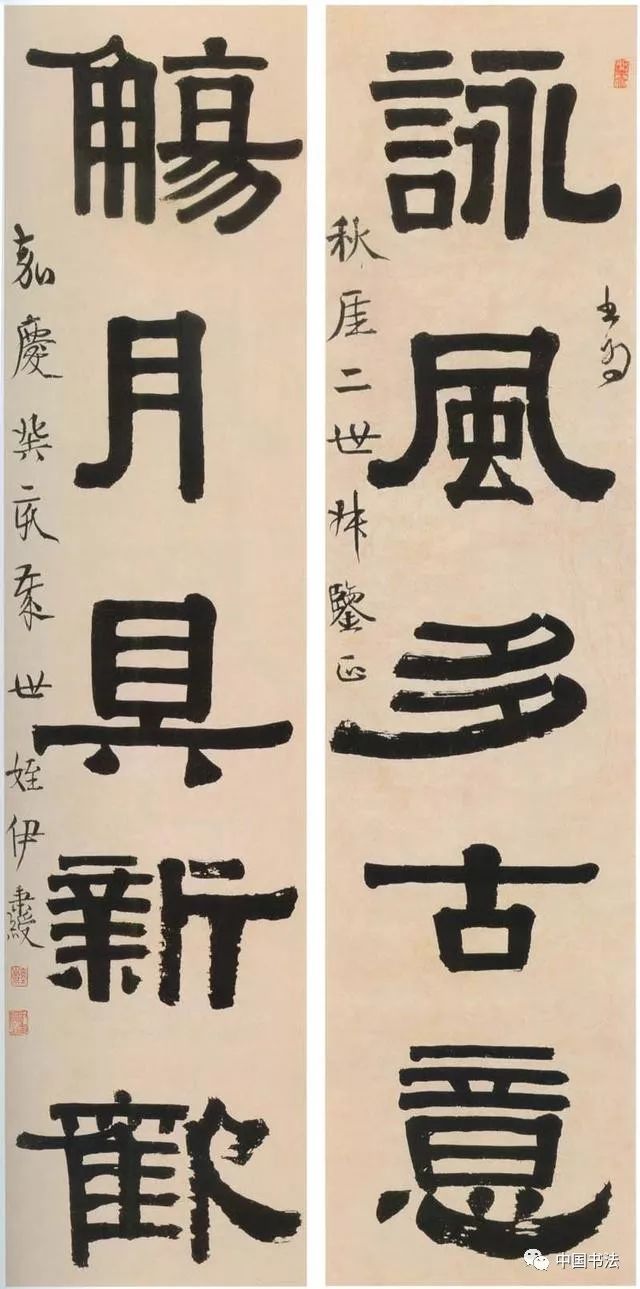 書為
詠風多古意
秋厓二世叔鑒正
觴月具新歡
嘉慶癸亥歲世姪伊秉綬
中国书法